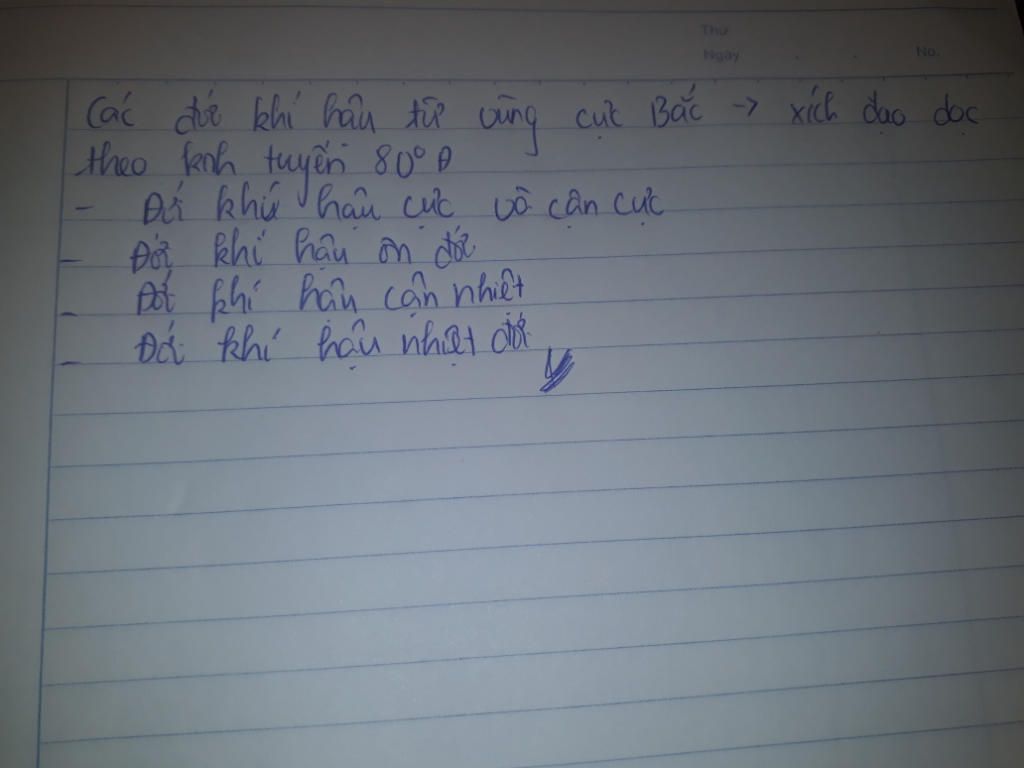 Thứ
Ngày . . No.
Các đới khí hậu từ vùng cực Bắc → xích đạo dọc
theo kinh tuyến 80° Đ
- Đới khí hậu cực và cận cực
- Đới khí hậu ôn đới
- Đới khí hậu cận nhiệt
- Đới khí hậu nhiệt đới